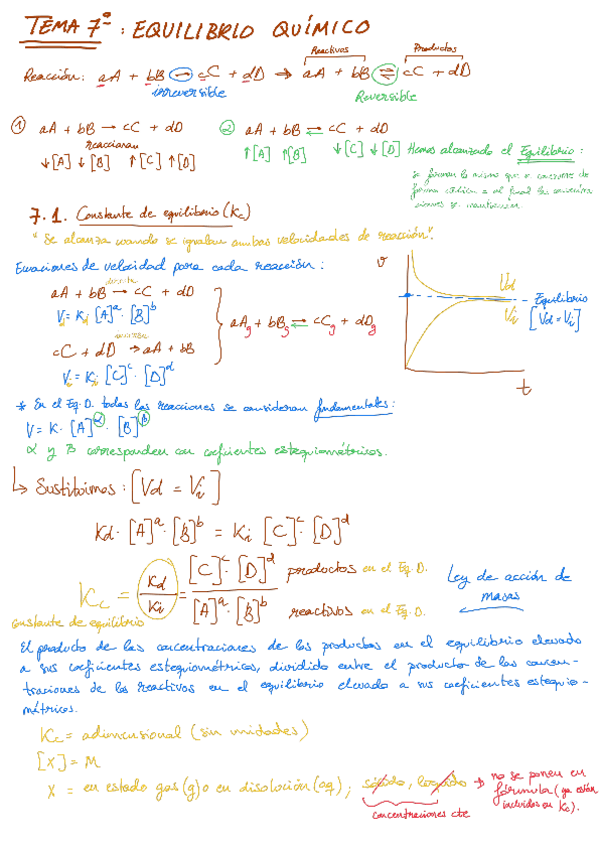 TEMA 7º: EQUILIBRIO QUÍMICO
Reactivos Productos
Reacción: aA + bB → cC + dD → aA + bB ⇌ cC + dD
irreversible Reversible
① aA + bB → cC + dD
reaccionan
↓[A] ↓[B] ↑[C] ↑[D]
② aA + bB ⇌ cC + dD
↑[A] ↑[B] ↓[C] ↓[D] Hemos alcanzado el Equilibrio:
se forman lo mismo que se convierte de
forma cíclica y al final las
se mantienen.
7.1. Constante de equilibrio (Kc)
"Se alcanza cuando se igualan ambas velocidades de reacción".
Ecuaciones de velocidad para cada reacción:
directa
aA + bB → cC + dD
Vd = Kd·[A]^a·[B]^b
inversa
cC + dD → aA + bB
Vi = Ki·[C]^c·[D]^d
aAg + bBg ⇌ cCg + dDg
v
Vd
Equilibrio
Vi
[Vd = Vi]
t
* En el Eq. Q. todas las reacciones se consideran fundamentales:
V = K·[A]^α·[B]^β
α y β corresponden con coeficientes estequiométricos.
↳ Sustituimos: [Vd = Vi]
Kd·[A]^a·[B]^b = Ki [C]^c·[D]^d
Kc = Kd/Ki = [C]^c·[D]^d / [A]^a·[B]^b
productos en el Eq. Q.
reactivos en el Eq. Q.
Ley de acción de
masas
constante de equilibrio
El producto de las concentraciones de los productos en el equilibrio elevado
a sus coeficientes estequiométricos, dividido entre el producto de las concen-
traciones de los reactivos en el equilibrio elevado a sus coeficientes estequio-
métricos.
Kc = adimensional (sin unidades)
[X] = M
X = en estado gas (g) o en disolución (aq); sólido, líquido → no se ponen en
fórmula (ya están
incluidos en Kc).
concentraciones cte